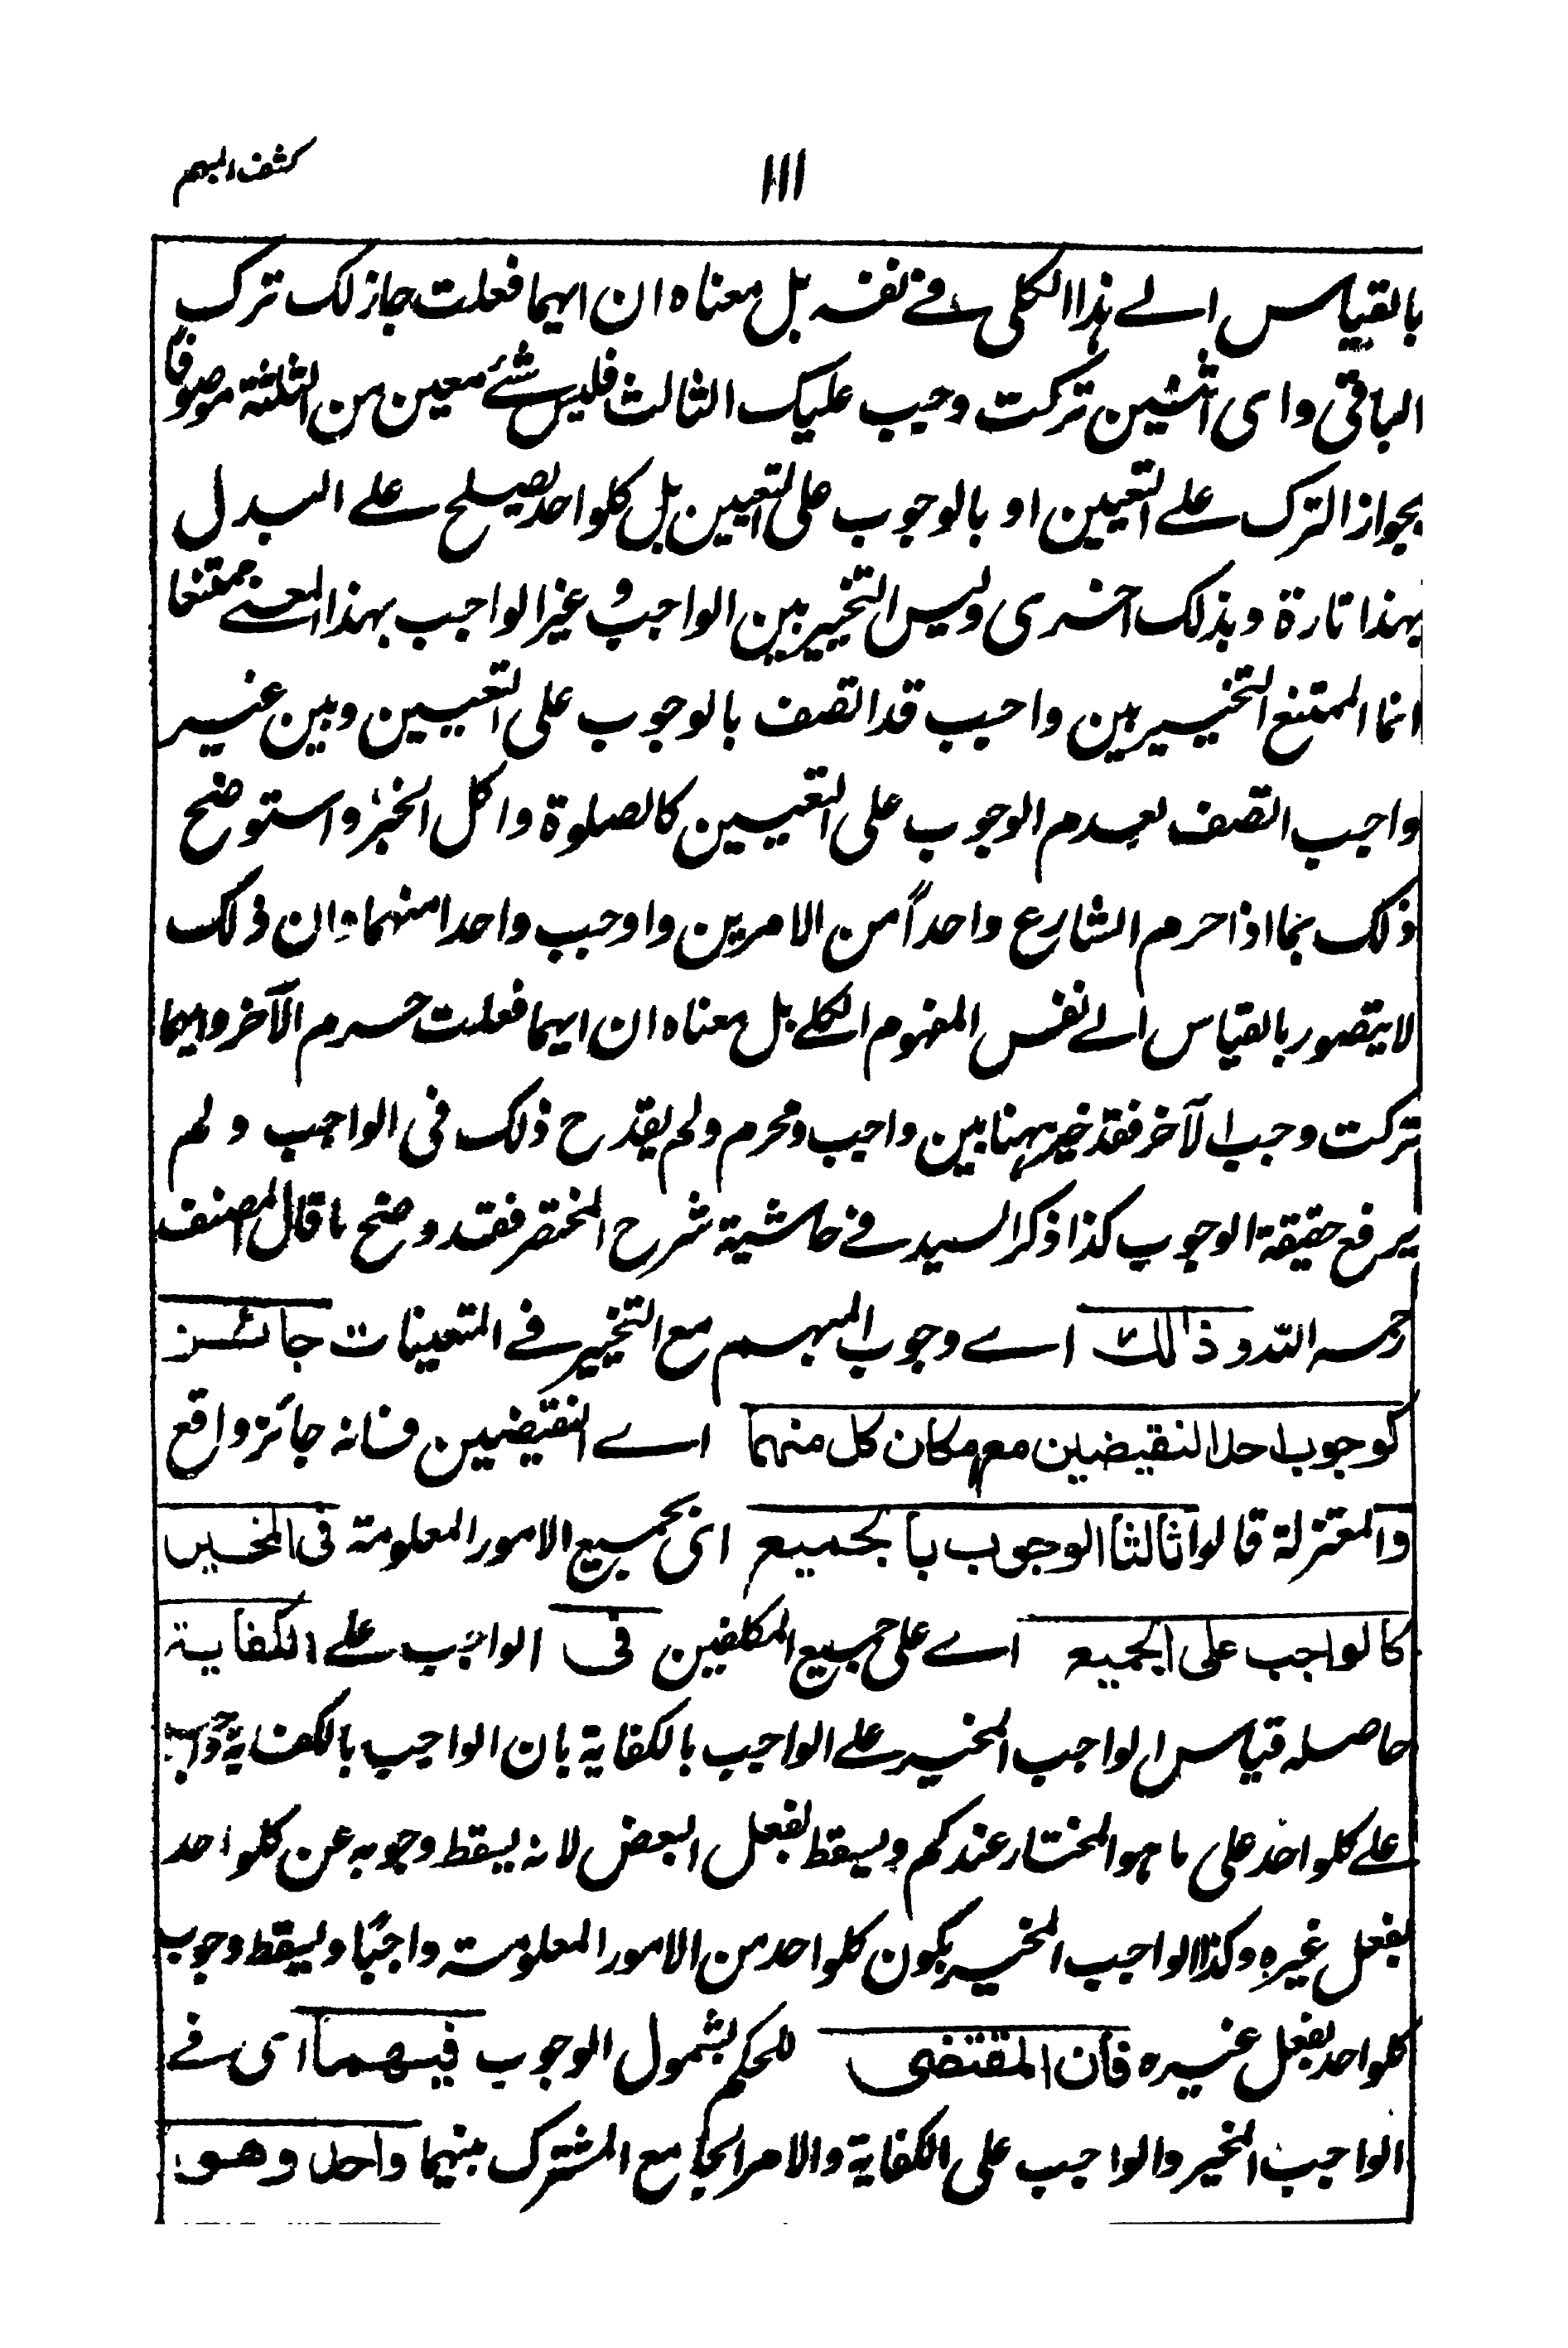 كشف المبهم
١١١
بالقياس الے هذا الكلی فے نفسه بل معناه ان ايهما فعلت جاز لك ترك
الباقی وای اثنين تركت وجب عليك الثالث فليس شئے معين من الثلثة موصوفا
بجواز الترك علے التعيين او بالوجوب علی التعيين بل كلواحد يصلح علے البدل
بهذا تارة وبذلك اخری وليس التخيير بين الواجب و غير الواجب بهذا المعنے ممتنعا
انما الممتنع التخيير بين واجب قد اتصف بالوجوب علی التعيين وبين غير
واجب اتصف بعدم الوجوب علی التعيين كالصلوة واكل الخبز واستوضح
ذلك بما اذا حرم الشارع واحداً من الامرين واوجب واحدا منهما وان ذلك
لا يتصور بالقياس الے نفس المفهوم الكلے بل معناه ان ايهما فعلت حرم الآخر وايهما
تركت وجب الآخر فقد خير ههنا بين واجب ومحرم ولم يقدح ذلك فی الواجب ولم
يرفع حقيقة الوجوب كذا ذكر السيد فے حاشية شرح المختصر فقد وضح ما قال المصنف
رحمه الله وذالك اے وجوب المبهم مع التخيير فے المتعينات جائز
كوجوب احد النقيضين مع امكان كل منهما اے النقيضين فانه جائز واقع
والمعتزلة قالوا ثالثا الوجوب بالجميع ای بجميع الامور المعلومة فی المخير
كالواجب علی الجميع اے علی جميع المكلفين فی الواجب علے الكفاية
حاصله قياس الواجب المخير علے الواجب بالكفاية بان الواجب بالكفاية واجب
علے كلواحد علی ما هو المختار عندكم ويسقط بفعل البعض لانه يسقط وجوبه عن كلواحد
بفعل غيره وكذا الواجب المخير يكون كلواحد من الامور المعلومة واجبا ويسقط وجوب
كلواحد بفعل غيره فان المقتضی للحكم بشمول الوجوب فيهما ای فے
الواجب المخير والواجب علی الكفاية والامر الجامع المشترك بينهما واحد وهو